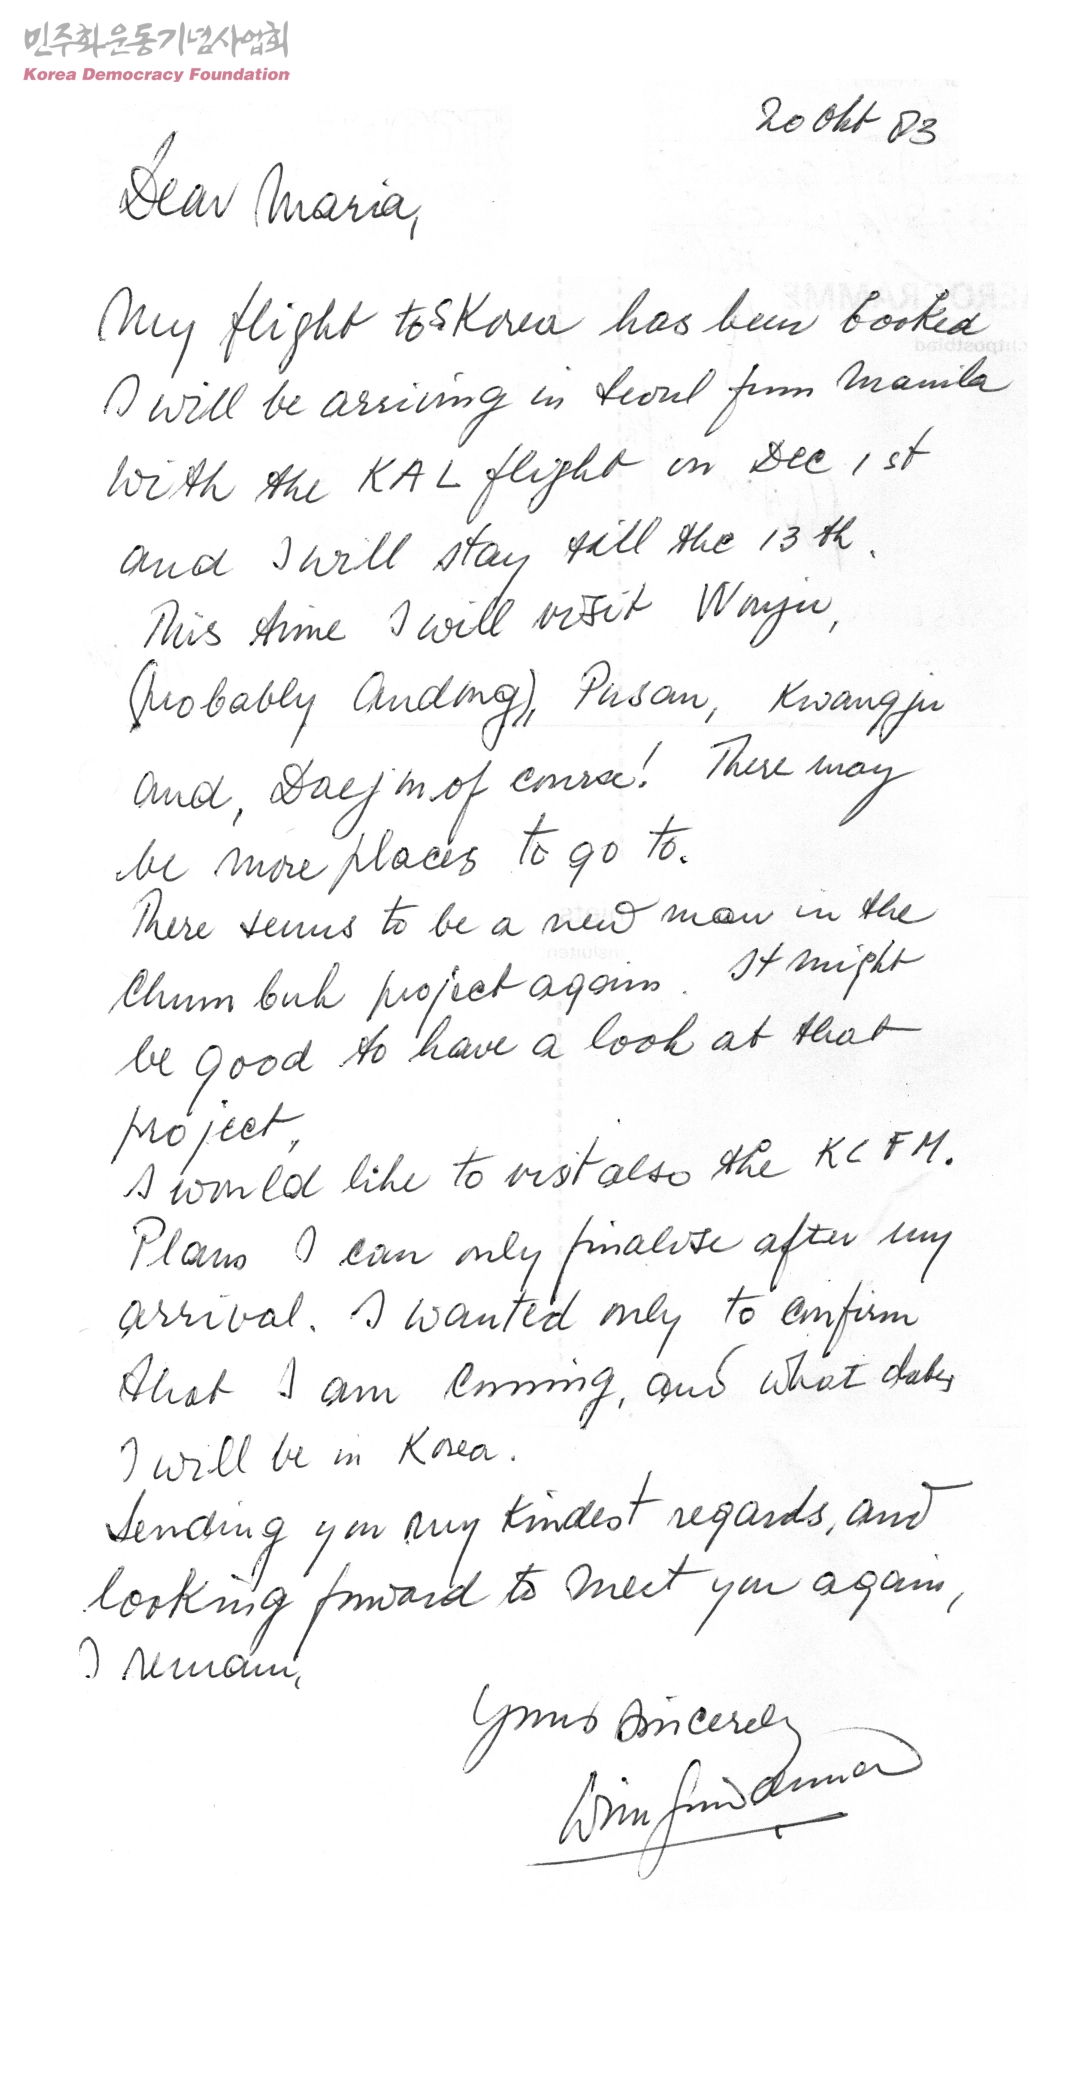 민주화운동기념사업회
Korea Democracy Foundation
20 Okt 83
Dear Maria,
My flight to S Korea has been booked
I will be arriving in Seoul from Manila
with the KAL flight on Dec 1st
and I will stay till the 13th.
This time I will visit Wonju,
(probably Andong), Pusan, Kwangju
and, Daejon of course! There may
be more places to go to.
There seems to be a new man in the
Chum buk project again. It might
be good to have a look at that
project,
I would like to visit also the KCFM.
Plans I can only finalise after my
arrival. I wanted only to confirm
that I am coming, and what dates
I will be in Korea.
Sending you my kindest regards, and
looking forward to meet you again,
I remain,
Yours sincerely
Wim
AEROGRAMME